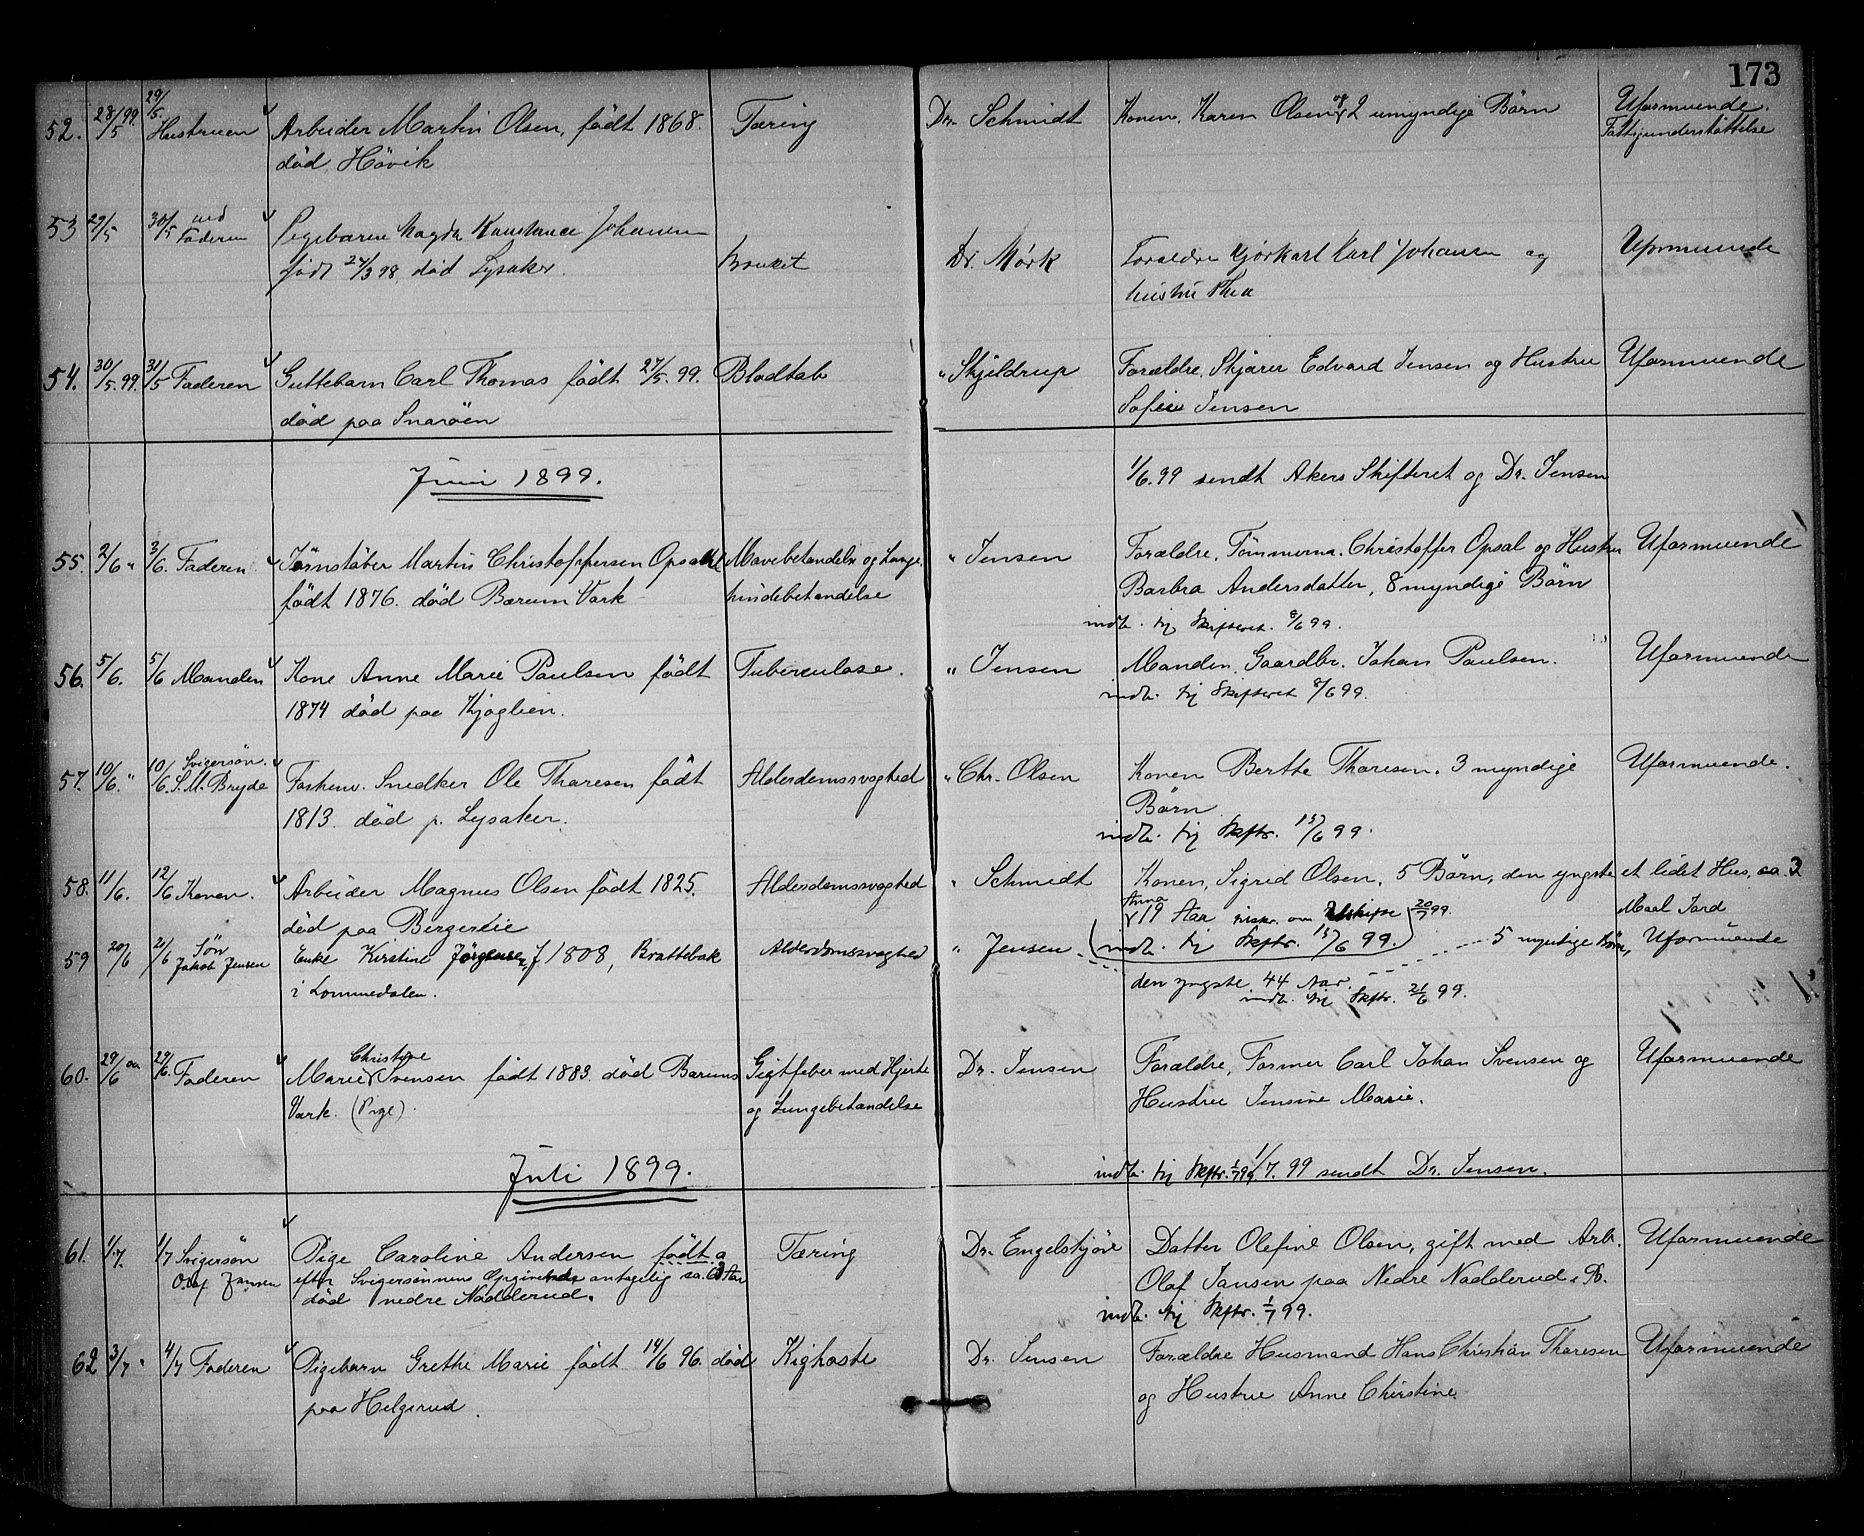 173
52. 28/5 99. 29/5. Hustruen Arbeider Martin Olsen, født 1868. Tæring Dr. Schmidt Konen, Karen Olsen og 2 umyndige Børn Uformuende.
død Høvik Fattigunderstøttelse
53 29/5 30/5 ved Faderen Pigebarn Magda Konstance Johansen Dr. Mørk Forældre Kjørkarl Karl Johansen og Uformuende
født 27/3 98, død Lysaker. hustru Thea
54. 30/5. 99. 31/5 Faderen Guttebarn Carl Thomas født 27/5. 99. Blodtab " Skjeldrup Forældre, Skjærer Edvard Jensen og Hustru Uformuende
død paa Snarøen Sofie Jensen
Juni 1899. 1/6. 99 sendt Akers Skifteret og Dr. Jensen
55. 2/6 " 3/6. Faderen. Jernstøber Martin Christoffersen Opsahl Mavebetændelse og Lunge " Jensen Forældre, Tømmerm. Christoffer Opsal og Hustru Uformuende
født 1876. død Bærum Værk hindebetændelse Barbra Andersdatter, 8 myndige Børn
indb. til Skifteret. 8/6 99.
56. 5/6. 5/6 Manden Kone Anne Marie Paulsen født Tuberculose. " Jensen Manden, Gaardbr. Johan Paulsen. Uformuende
1874 død paa Kjaglien. indb. til Skifteret 8/6 99.
57. 10/6. " 10/6. Svigersøn. S. M. Bryde Forhenv. Snedker Ole Thoresen født Alderdomssvaghed " Chr. Olsen Konen Berthe Thoresen. 3 myndige Uformuende.
1813. død p. Lysaker. Børn
indb. til Skftr. 15/6 99.
58. 11/6. 12/6 Konen. Arbeider Magnus Olsen født 1825. Alderdomssvaghed " Schmidt Konen, Sigrid Olsen. 5 Børn, den yngste et lidet Hus, ca. 3
død paa Bergerlie Anna 19 Aar 20/7 99. Maal Jord
59 20/6 21/6 Søn Jakob Jensen Enke Kirstine Jørgensen, f. 1808, Brattebak Alderdomssvaghed " Jensen. (indb. til Skftr. 15/6 99.) 5 myndige Børn, Uformuende
i Lommedalen. den yngste 44 Aar.
indb. til Skftr. 21/6 99.
60. 29/6 29/6. Faderen Marie Christine Svensen født 1883. død Bærums Gigtfeber med Hjerte Dr. Jensen Forældre, Former Carl Johan Svensen og Uformuende
Værk. (Pige). og Lungebetændelse Hustru Jensine Marie.
Juli 1899. indb. til Skftr. 1/7 99 1/7. 99 sendt Dr. Jensen.
61. 1/7. 1/7 Svigersøn Olaf Jansen Pige Caroline Andersen født Tæring Dr. Engelskjøn Datter Olefine Olsen, gift med Arb. Uformuende
efter Svigersønnens Opgivende antagelig ca. 63 Aar Olaf Jansen paa Nedre Nadderud i B.
død nedre Nadderud. indb. til Skftr. 1/7 99.
62 3/7 " 4/7 Faderen Pigebarn Grethe Marie født 14/6 96. død Kighoste Dr. Jensen Forældre Husmand Hans Christian Thoresen Uformuende
paa Helgerud. og Hustru Anne Christine